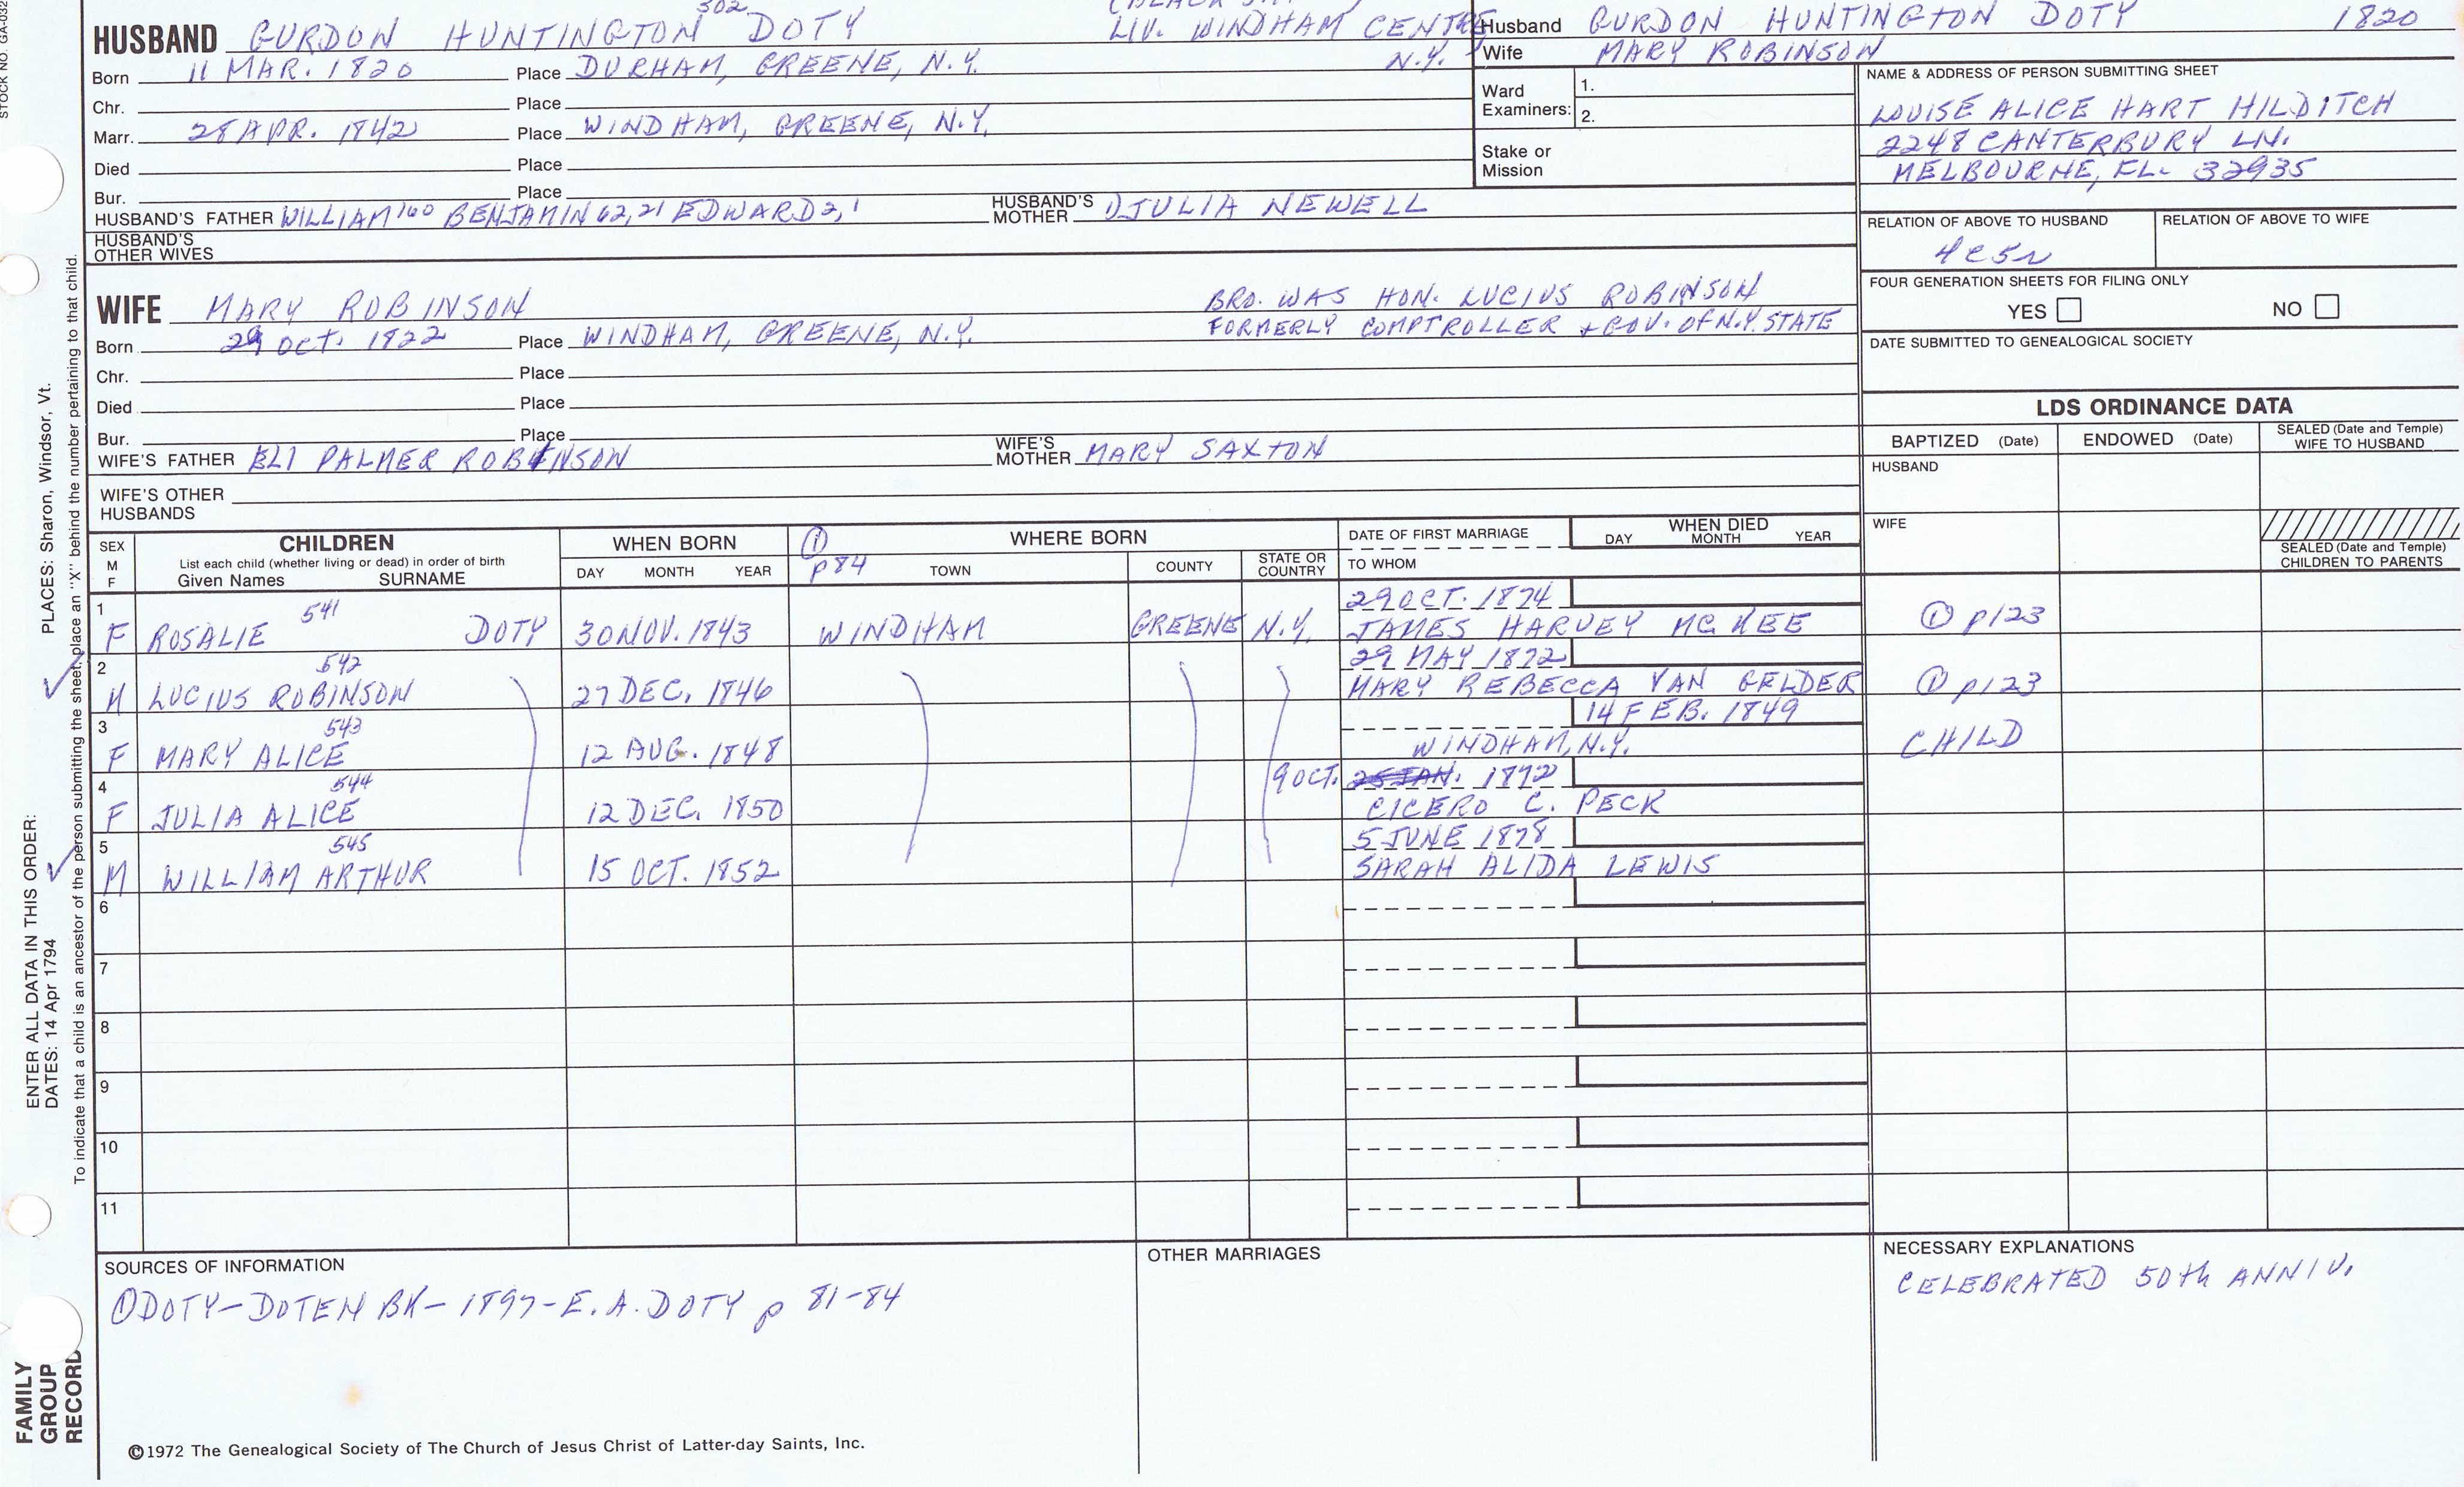 STOCK NO. GA-032
302
HUSBAND GURDON HUNTINGTON DOTY
LIV. WINDHAM CENTRE
N.Y.
Born 11 MAR. 1820 Place DURHAM, GREENE, N.Y.
Chr. Place
Marr. 28 APR. 1842 Place WINDHAM, GREENE, N.Y.
Died Place
Bur. Place
HUSBAND'S FATHER WILLIAM 160 BENJAMIN 62, 21 EDWARD 2, 1 HUSBAND'S MOTHER 1) JULIA NEWELL
HUSBAND'S OTHER WIVES
Husband GURDON HUNTINGTON DOTY 1820
Wife MARY ROBINSON
Ward Examiners: 1.
2.
Stake or Mission
NAME & ADDRESS OF PERSON SUBMITTING SHEET
LOUISE ALICE HART HILDITCH
2248 CANTERBURY LN.
MELBOURNE, FL. 32935
RELATION OF ABOVE TO HUSBAND RELATION OF ABOVE TO WIFE
4C5R
FOUR GENERATION SHEETS FOR FILING ONLY
YES NO
DATE SUBMITTED TO GENEALOGICAL SOCIETY
WIFE MARY ROBINSON
BRO. WAS HON. LUCIUS ROBINSON
FORMERLY COMPTROLLER + GOV. OF N.Y. STATE
Born 29 OCT. 1822 Place WINDHAM, GREENE, N.Y.
Chr. Place
Died Place
Bur. Place
WIFE'S FATHER ELI PALMER ROBINSON WIFE'S MOTHER MARY SAXTON
WIFE'S OTHER HUSBANDS
LDS ORDINANCE DATA
BAPTIZED (Date) ENDOWED (Date) SEALED (Date and Temple) WIFE TO HUSBAND
HUSBAND
WIFE
SEALED (Date and Temple) CHILDREN TO PARENTS
SEX M F
CHILDREN
List each child (whether living or dead) in order of birth
Given Names SURNAME
WHEN BORN
DAY MONTH YEAR
① p 84
WHERE BORN
TOWN COUNTY STATE OR COUNTRY
DATE OF FIRST MARRIAGE
TO WHOM
WHEN DIED
DAY MONTH YEAR
1 541 29 OCT. 1874
F ROSALIE DOTY 30 NOV. 1843 WINDHAM GREENE N.Y. JAMES HARVEY MC KEE ① p123
2 542 29 MAY 1872
M LUCIUS ROBINSON 27 DEC. 1846 MARY REBECCA VAN GELDER ① p123
3 543 14 FEB. 1849
F MARY ALICE 12 AUG. 1848 WINDHAM, N.Y. CHILD
4 544 9 OCT. 25 JAN. 1872
F JULIA ALICE 12 DEC. 1850 CICERO C. PECK
5 545 5 JUNE 1878
M WILLIAM ARTHUR 15 OCT. 1852 SARAH ALIDA LEWIS
6
7
8
9
10
11
SOURCES OF INFORMATION
① DOTY-DOTEN BK- 1897- E. A. DOTY p 81-84
OTHER MARRIAGES
NECESSARY EXPLANATIONS
CELEBRATED 50th ANNIV.
©1972 The Genealogical Society of The Church of Jesus Christ of Latter-day Saints, Inc.
FAMILY GROUP RECORD
ENTER ALL DATA IN THIS ORDER:
PLACES: Sharon, Windsor, Vt.
DATES: 14 Apr 1794
To indicate that a child is an ancestor of the person submitting the sheet, place an "X" behind the number pertaining to that child.